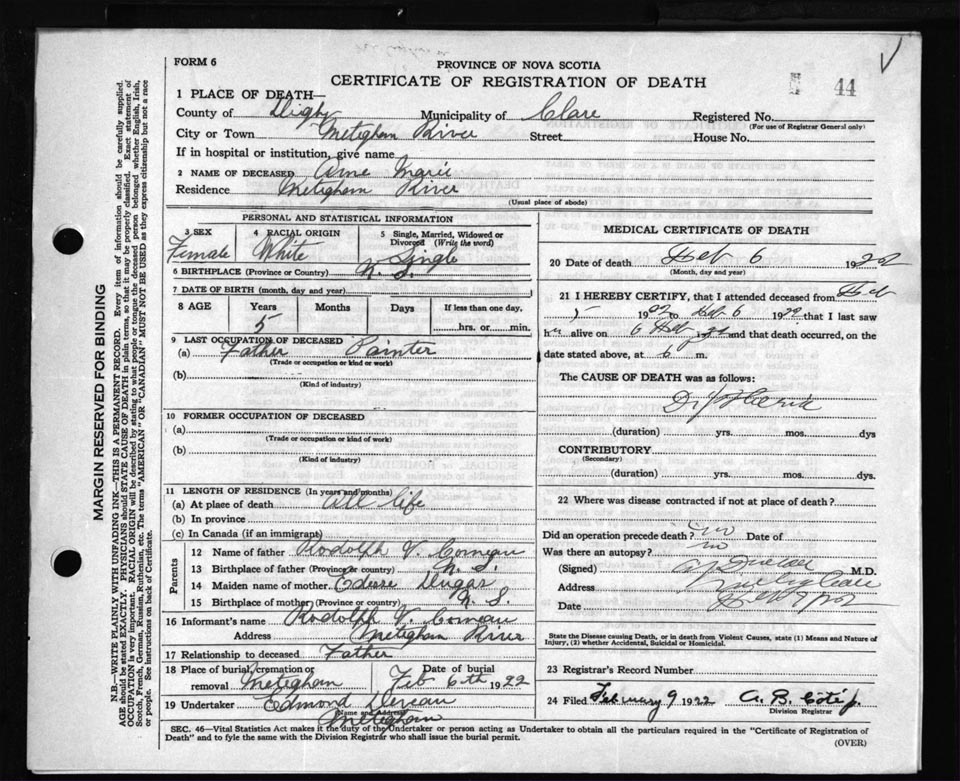 FORM 6
PROVINCE OF NOVA SCOTIA
CERTIFICATE OF REGISTRATION OF DEATH
44
1 PLACE OF DEATH—
County of Digby Municipality of Clare Registered No.
(For use of Registrar General only)
City or Town Meteghan River Street House No.
If in hospital or institution, give name
2 NAME OF DECEASED Anne Marie
Residence Meteghan River
(Usual place of abode)
PERSONAL AND STATISTICAL INFORMATION
3 SEX 4 RACIAL ORIGIN 5 Single, Married, Widowed or Divorced (Write the word)
Female White Single
6 BIRTHPLACE (Province or Country) N. S.
7 DATE OF BIRTH (month, day and year)
8 AGE Years Months Days If less than one day,
5 hrs. or min.
9 LAST OCCUPATION OF DECEASED
(a) Father Painter
(Trade or occupation or kind of work)
(b)
(Kind of industry)
10 FORMER OCCUPATION OF DECEASED
(a)
(Trade or occupation or kind of work)
(b)
(Kind of industry)
11 LENGTH OF RESIDENCE (In years and months)
(a) At place of death all life
(b) In province
(c) In Canada (if an immigrant)
Parents
12 Name of father Rodolph V. Comeau
13 Birthplace of father (Province or country) N. S.
14 Maiden name of mother Edesse Dugas
15 Birthplace of mother (Province or country) N. S.
16 Informant's name Rodolph V. Comeau
Address Meteghan River
17 Relationship to deceased Father
18 Place of burial, cremation or removal Meteghan Date of burial Feb 6th 1922
19 Undertaker Edmond Deveau
(Name and Address)
Meteghan
MEDICAL CERTIFICATE OF DEATH
20 Date of death Feb 6 1922
(Month, day and year)
21 I HEREBY CERTIFY, that I attended deceased from Feb
5 1922 to Feb 6 1922 that I last saw
her alive on 6 Feb 1922 and that death occurred, on the
date stated above, at 6 m.
The CAUSE OF DEATH was as follows:
(duration) yrs. mos. dys
CONTRIBUTORY
(Secondary)
(duration) yrs. mos. dys.
22 Where was disease contracted if not at place of death?
Did an operation precede death? no Date of
Was there an autopsy? no
(Signed) M.D.
Address
Date
State the Disease causing Death, or in death from Violent Causes, state (1) Means and Nature of
Injury, (2) whether Accidental, Suicidal or Homicidal.
23 Registrar's Record Number
24 Filed February 9 1922 A. B.
Division Registrar
SEC. 46—Vital Statistics Act makes it the duty of the Undertaker or person acting as Undertaker to obtain all the particulars required in the "Certificate of Registration of
Death" and to fyle the same with the Division Registrar who shall issue the burial permit.
(OVER)
MARGIN RESERVED FOR BINDING
N.B.—WRITE PLAINLY WITH UNFADING INK—THIS IS A PERMANENT RECORD. Every item of information should be carefully supplied.
AGE should be stated EXACTLY. PHYSICIANS should STATE CAUSE OF DEATH in plain terms, so that it may be properly classified. Exact statement of
OCCUPATION is very important. RACIAL ORIGIN will be described by stating to what people or tongue the deceased person belonged whether English, Irish,
Scotch, French, German, Russian, Ruthenian, etc. The terms "AMERICAN" OR "CANADIAN" MUST NOT BE USED as they express citizenship but not a race
or people. See instructions on back of Certificate.